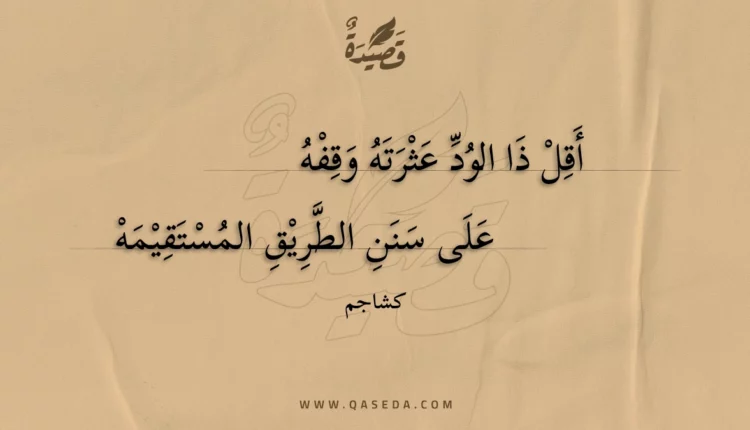 قَصِيْدَةٌ
أَقِلْ ذَا الوُدِّ عَثْرَتَهُ وَقِفْهُ
عَلَى سَنَنِ الطَّرِيْقِ المُسْتَقِيْمَهْ
كشاجم
WWW.QASEDA.COM